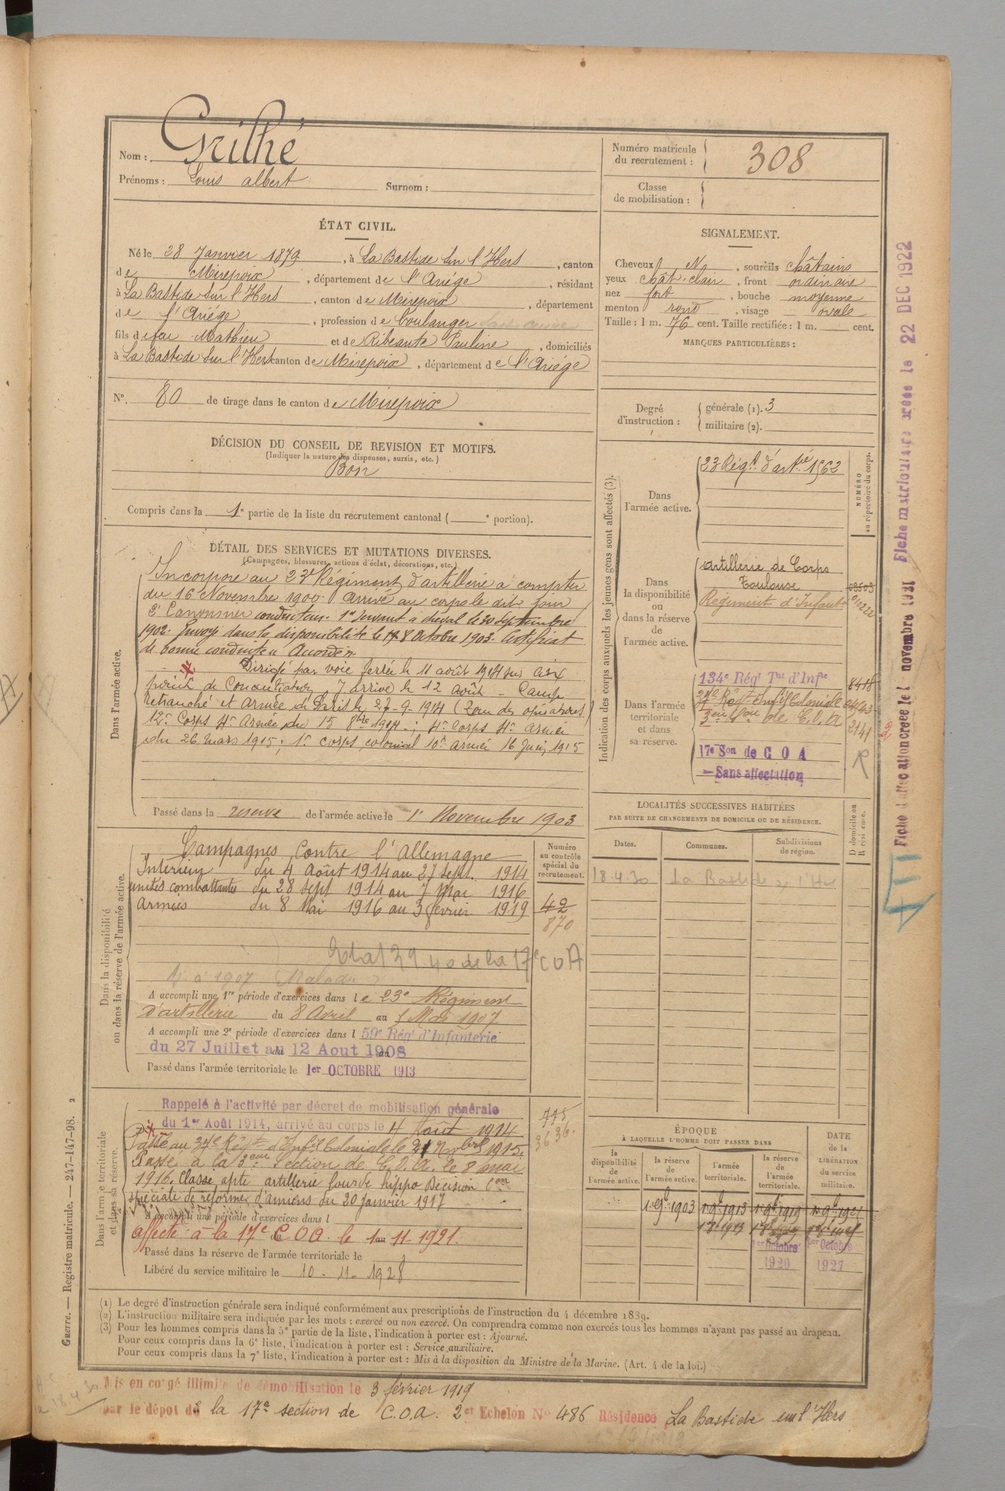 Nom : Grilhé
Prénoms : Louis albert Surnom :
Numéro matricule du recrutement : 308
Classe de mobilisation :
ÉTAT CIVIL.
Né le 28 Janvier 1879, à La Bastide sur l'Hers, canton
de Mirepoix, département de l'Ariége, résidant
à La Bastide sur l'Hers, canton de Mirepoix, département
de l'Ariége, profession de Boulanger
fils de feu Mathieu et de Ribeaute Pauline, domiciliés
à La Bastide sur l'Hers canton de Mirepoix, département de l'Ariége
N° 80 de tirage dans le canton de Mirepoix
SIGNALEMENT.
Cheveux N, sourcils châtains
yeux chât-clair, front ordinaire
nez fort, bouche moyenne
menton rond, visage ovale
Taille : 1 m. 76 cent. Taille rectifiée : 1 m. cent.
MARQUES PARTICULIÈRES :
DÉCISION DU CONSEIL DE REVISION ET MOTIFS.
(Indiquer la nature des dispenses, sursis, etc.)
Bon
Compris dans la 1e partie de la liste du recrutement cantonal ( e portion).
Degré d'instruction : générale (1). 3
militaire (2).
DÉTAIL DES SERVICES ET MUTATIONS DIVERSES.
(Campagnes, blessures, actions d'éclat, décorations, etc.)
Dans l'armée active.
Incorporé au 23e Régiment d'artillerie à compter
du 16 Novembre 1900. Arrivé au corps le dit jour
2e Canonnier conducteur. 1er servant à cheval le 20 septembre
1902. Envoyé dans la disponibilité le 18 Octobre 1903. Certificat
de bonne conduite Accordé
Dirigé par voie ferrée le 11 août 1914 sur aix
point de Concentration, y arrive le 12 Août - Camp
Retranché et Armée de Paris le 27-9-1914 (Zone des opérations)
12e Corps 4e Armée du 15 8bre 1914 ; 4e Corps 4e Armée
du 26 mars 1915 ; 1er corps colonial 10e armée 16 Juin 1915
Passé dans la réserve de l'armée active le 1er Novembre 1903
Indication des corps auxquels les jeunes gens sont affectés (3).
NUMÉRO au répertoire du corps.
Dans l'armée active.
23 Régt d'artie 1562
Dans la disponibilité ou dans la réserve de l'armée active.
artillerie de Corps
Toulouse
Régiment d'Infant
Dans l'armée territoriale et dans sa réserve.
134e Régt Tal d'Infie
24e Régt Inf Coloniale
3eme Son de C.O.A
2141
17e Son de C O A
R
Sans affectation
LOCALITÉS SUCCESSIVES HABITÉES
PAR SUITE DE CHANGEMENTS DE DOMICILE OU DE RÉSIDENCE.
Dates. Communes. Subdivisions de région. D domicile ou R résidence.
18.4.30 La Bastide s/ l'Hers
Dans la disponibilité ou dans la réserve de l'armée active.
Numéro au contrôle spécial du recrutement.
Campagnes Contre l'Allemagne
Intérieur du 4 Août 1914 au 27 Sept. 1914
unités combattantes du 28 sept 1914 au 7 Mai 1916
Armées du 8 Mai 1916 au 3 février 1919
42
870
A accompli une 1re période d'exercices dans le 23e Régiment
d'artillerie du 8 Avril au 7 Mai 1907
A accompli une 2e période d'exercices dans l 59e Régt d'Infanterie
du 27 Juillet au 12 Aout 1908
Passé dans l'armée territoriale le 1er OCTOBRE 1913
Dans l'armée territoriale et dans sa réserve.
Rappelé à l'activité par décret de mobilisation générale
du 1er Août 1914, arrivé au corps le 4 Aout 1914
Passé au 24e Régt d'Inft Coloniale le 21 Novbre 1915.
Passé à la 3eme Section de C.O.A. le 8 mai
1916. Classé apte artillerie lourde hippo Décision Con
spéciale de réforme d'amiens du 20 janvier 1917
A accompli une période d'exercices dans l
affecté à la 17e C.O.A. le 1 au 11.1921.
Passé dans la réserve de l'armée territoriale le
Libéré du service militaire le 10. 11. 1928
ÉPOQUE
À LAQUELLE L'HOMME DOIT PASSER DANS
DATE de la LIBÉRATION DU SERVICE militaire.
la disponibilité de l'armée active. la réserve de l'armée active. l'armée territoriale. la réserve de l'armée territoriale.
1er Octobre 1920 1er Octobre 1927
(1) Le degré d'instruction générale sera indiqué conformément aux prescriptions de l'instruction du 4 décembre 1889.
(2) L'instruction militaire sera indiquée par les mots : exercé ou non exercé. On comprendra comme non exercés tous les hommes n'ayant pas passé au drapeau.
(3) Pour les hommes compris dans la 5e partie de la liste, l'indication à porter est : Ajourné.
Pour ceux compris dans la 6e liste, l'indication à porter est : Service auxiliaire.
Pour ceux compris dans la 7e liste, l'indication à porter est : Mis à la disposition du Ministre de la Marine. (Art. 4 de la loi.)
Mis en congé illimité de démobilisation le 3 février 1919
par le dépôt de la 17e section de C.O.A. 2e Echelon No 486 Résidence La Bastide sur l'Hers
Guerre. — Registre matricule. — 247-147-98. 2
Fiche d'affectation créée le 1 novembre 1931 Fiche matriculaire créée le 22 DEC 1922